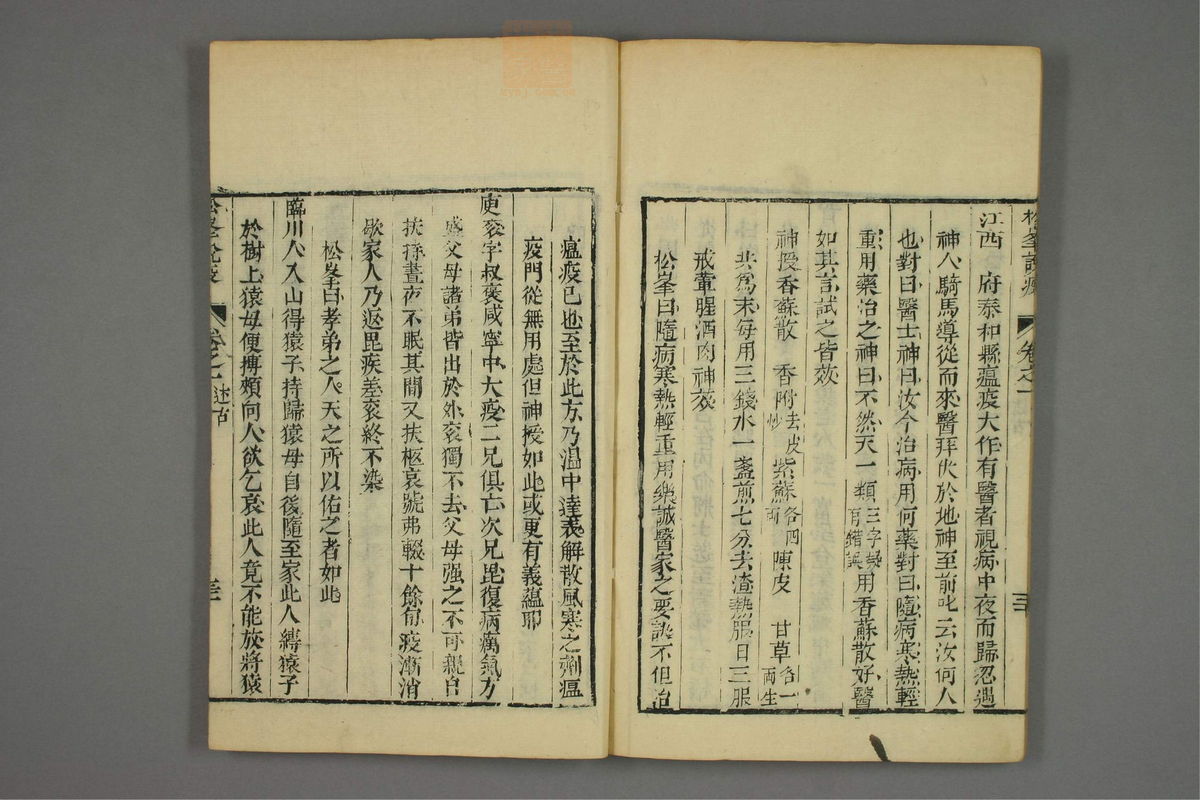 松峯說疫 卷之一 三十
江西 府泰和縣瘟疫大作有醫者視病中夜而歸忽遇
神人騎馬導從而來醫拜伏於地神至前叱云汝何人
也對曰醫士神曰汝今治病用何藥對曰隨病寒熱輕
重用藥治之神曰不然天一類三字疑有錯誤用香蘇散好醫
如其言試之皆效
神授香蘇散 香附去皮炒 紫蘇各四兩 陳皮 甘草各一兩生
共為末每用三錢水一盞煎七分去渣熱服日三服
戒葷腥酒肉神效
松峯曰隨病寒熱輕重用藥誠醫家之要訣不但治
瘟疫已也至於此方乃溫中達表解散風寒之劑瘟
疫門從無用處但神授如此或更有義蘊耶
庾袞字叔褒咸寧中大疫二兄俱亡次兄毘復病癘氣方
盛父母諸弟皆出於外袞獨不去父母强之不可親自
扶持晝夜不眠其間又扶柩哀號弗輟十餘旬疫漸消
歇家人乃返毘疾差袞終不染
松峯曰孝弟之人天之所以佑之者如此
臨川人入山得猿子持歸猿母自後隨至家此人縛猿子
於樹上猿母便搏頰向人欲乞哀此人竟不能放將猿
松峯說疫 卷之一 述古 三十一